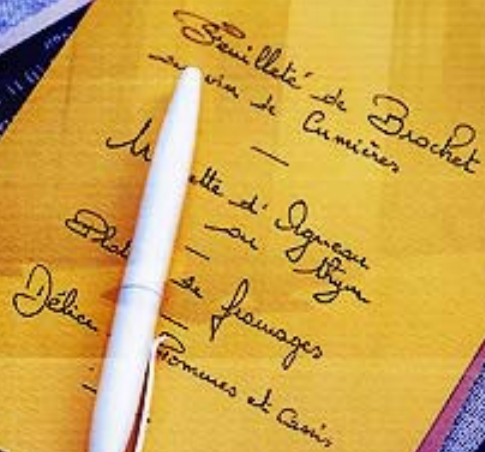 Feuilleté de Brochet
au vin de Cumières
—
d' Agneau
au thym
—
de fromages
—
Délice Pommes et Cassis